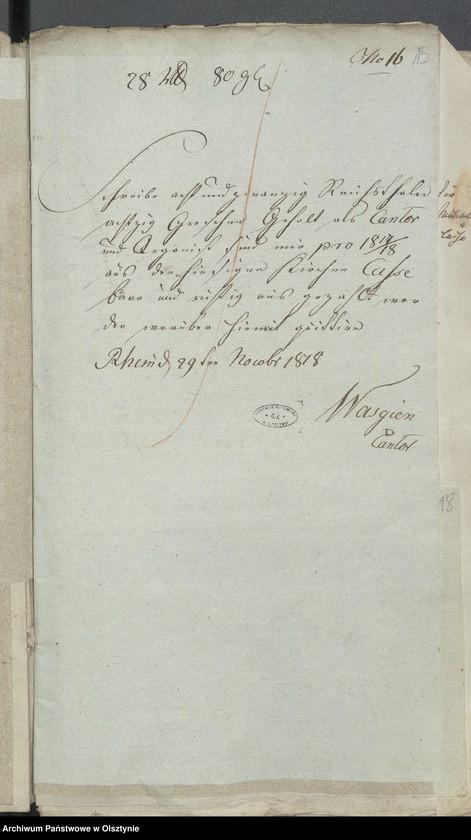 No 16 15
28 rtl 80 gl
Schreibe acht und zwanzig Reichsthaler
achtzig Groschen Gehalt als Cantor
und Organist sind mir pro 1817/18
aus der hiesigen Kirchen Casse
baar und richtig aus gezahlt wor
den worüber hiemit quittire
Rhein d 29ten Novbr 1818
Wasgien
Cantor
42
18
Archiwum Państwowe w Olsztynie